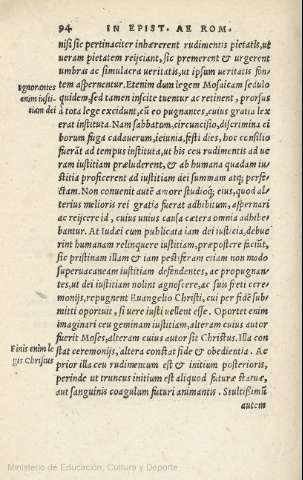 94 IN EPIST. AE ROM.
nisi sic pertinaciter inhærerent rudimentis pietatis, ut
ueram pietatem reijciant, sic premerent & urgerent
umbras ac simulacra ueritatis, ut ipsum ueritatis fon
tem aspernentur. Etenim dum legem Mosaicam sedulo
Ignorantes
enim iusti-
tiam dei
quidem, sed tamen inscite tuentur ac retinent, prorsus
à tota lege excidunt, cũ eo pugnantes, cuius gratia lex
erat instituta. Nam sabbatum, circuncisio, discrimina ci
borum fuga cadauerum, ieiunia, festi dies, hoc consilio
fuerãt ad tempus instituta, ut his ceu rudimentis ad ue
ram iustitiam præluderent, & ab humana quadam iu-
stitia proficerent ad iustitiam dei summam atq; perfe-
ctam. Non conuenit autẽ amore studioq; eius, quod al-
terius melioris rei gratia fuerat adhibitum, aspernari
ac reijcere id, cuius unius causa cætera omnia adhibe-
bantur. At Iudæi cum publicata iam dei iusticia, debue
rint humanam relinquere iustitiam, præpostere faciũt,
sic pristinam illam & iam pestiferam etiam non modo
superuacaneam iustitiam defendentes, ac propugnan-
tes, ut dei iustitiam nolint agnoscere, ac suis freti cere-
monijs, repugnent Euangelio Christi, cui per fidẽ sub-
mitti oportuit, si uere iusti uellent esse. Oportet enim
imaginari ceu geminam iustitiam, alteram cuius autor
fuerit Moses, alteram cuius autor sit Christus. Illa con
Finis enim le
gis Christus
stat ceremonijs, altera constat fide & obedientia. Ac
prior illa ceu rudimentum est & initium posterioris,
perinde ut truncus initium est aliquod futuræ statuæ,
aut sanguinis coagulum futuri animantis. Stultißimũ
autem
Ministerio de Educación, Cultura y Deporte